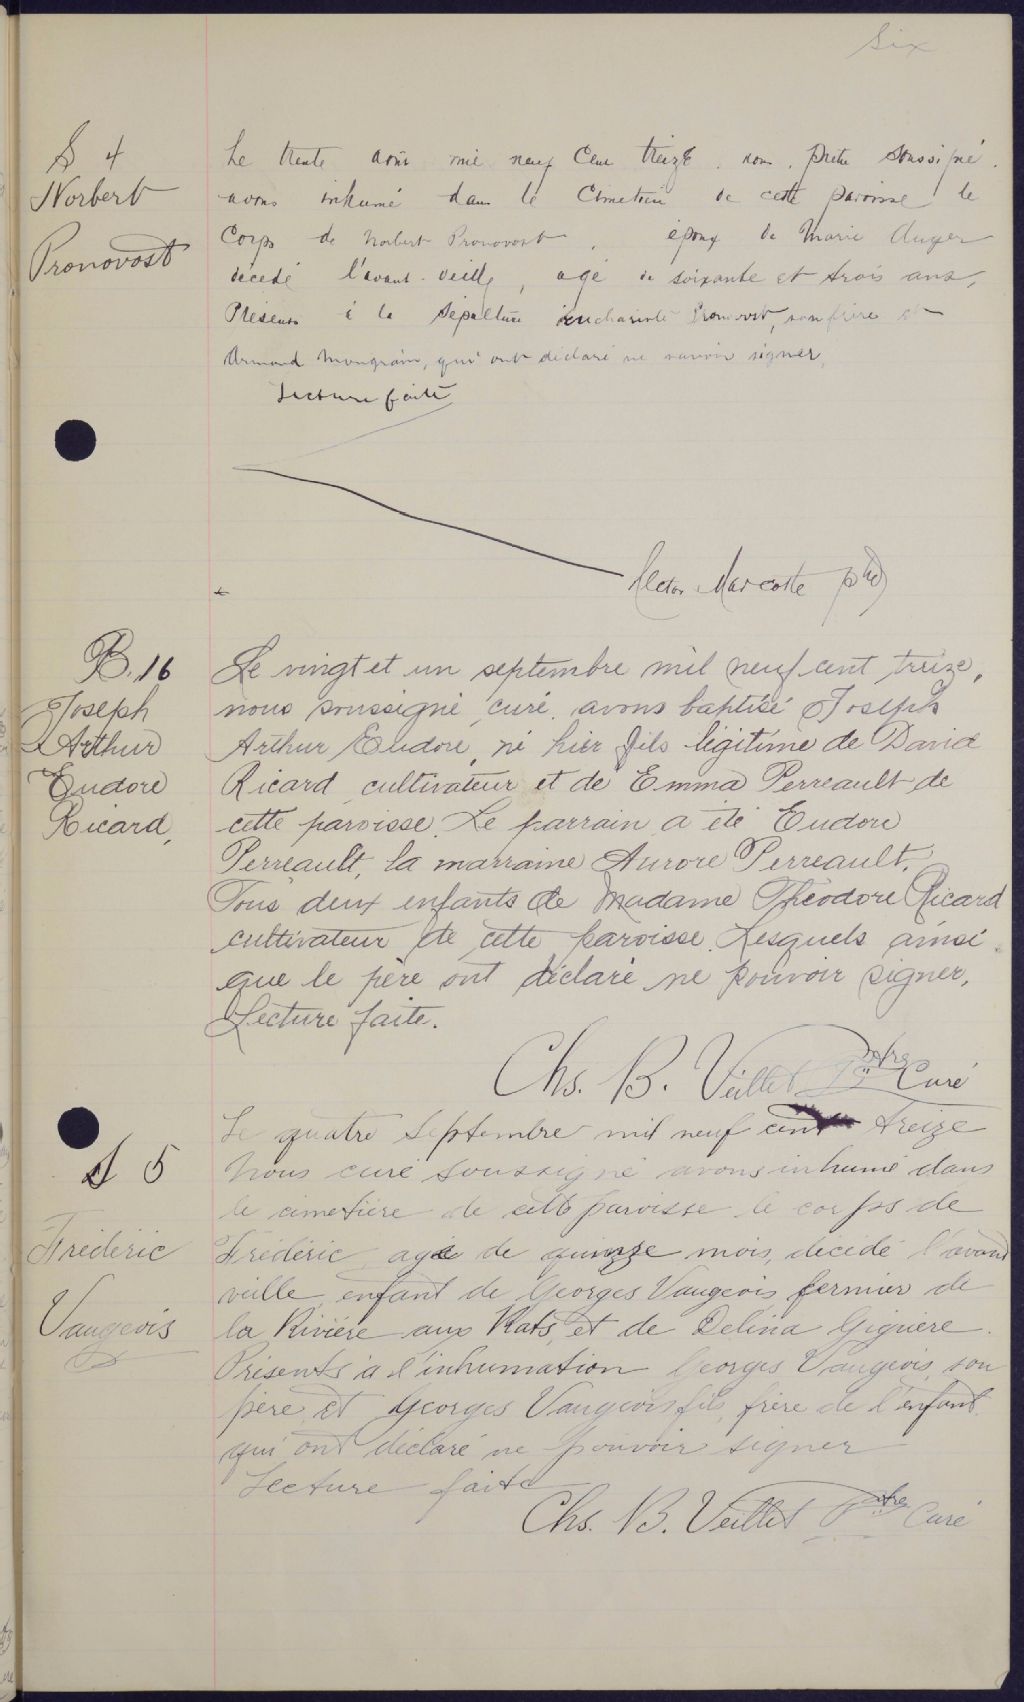 Six
S 4
Norbert
Pronovost
Le trente août mil neuf cent treize, nous, prêtre soussigné,
avons inhumé dans le cimetière de cette paroisse le
corps de Norbert Pronovost, époux de Marie Auger
décédé l'avant-veille, agé de soixante et trois ans,
Présents à la sépulture Pronovost, son frère et
Armand Mongrain, qui ont déclaré ne savoir signer,
Lecture faite
Hector Marcotte ptre
B. 16
Joseph
Arthur
Eudore
Ricard,
Le vingt et un septembre mil neuf cent treize,
nous soussigné, curé, avons baptisé Joseph
Arthur Eudore, né hier fils légitime de David
Ricard, cultivateur et de Emma Perreault de
cette paroisse. Le parrain a été Eudore
Perreault, la marraine Aurore Perreault.
Tous deux enfants de Madame Théodore Ricard
cultivateur de cette paroisse. Lesquels ainsi
que le père ont déclaré ne pouvoir signer.
Lecture faite.
Chs. B. Veillet Ptre Curé
S 5
Frédéric
Vaugeois
Le quatre Septembre mil neuf cent treize
Nous curé soussigné avons inhumé dans
le cimetière de cette paroisse le corps de
Frédéric agé de quinze mois, décédé l'avant
veille, enfant de Georges Vaugeois fermier de
la Rivière aux Rats, et de Delina Giguère.
Présents à l'inhumation Georges Vaugeois, son
père et Georges Vaugeois fils, frère de l'enfant
qui ont déclaré ne pouvoir signer
Lecture faite
Chs. B. Veillet Ptre Curé